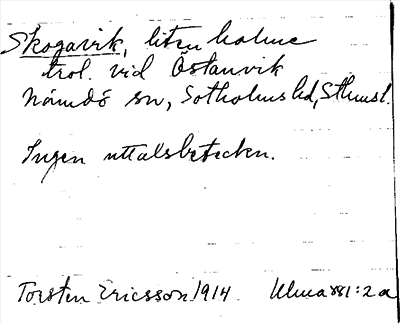 Skogavik, liten holme
trol. vid Östanvik
Nämdö sn, Sotholms hd, Sthmsl.
Ingen uttalsbeteckn.
Torsten Ericsson 1914. Ulma 881:2a